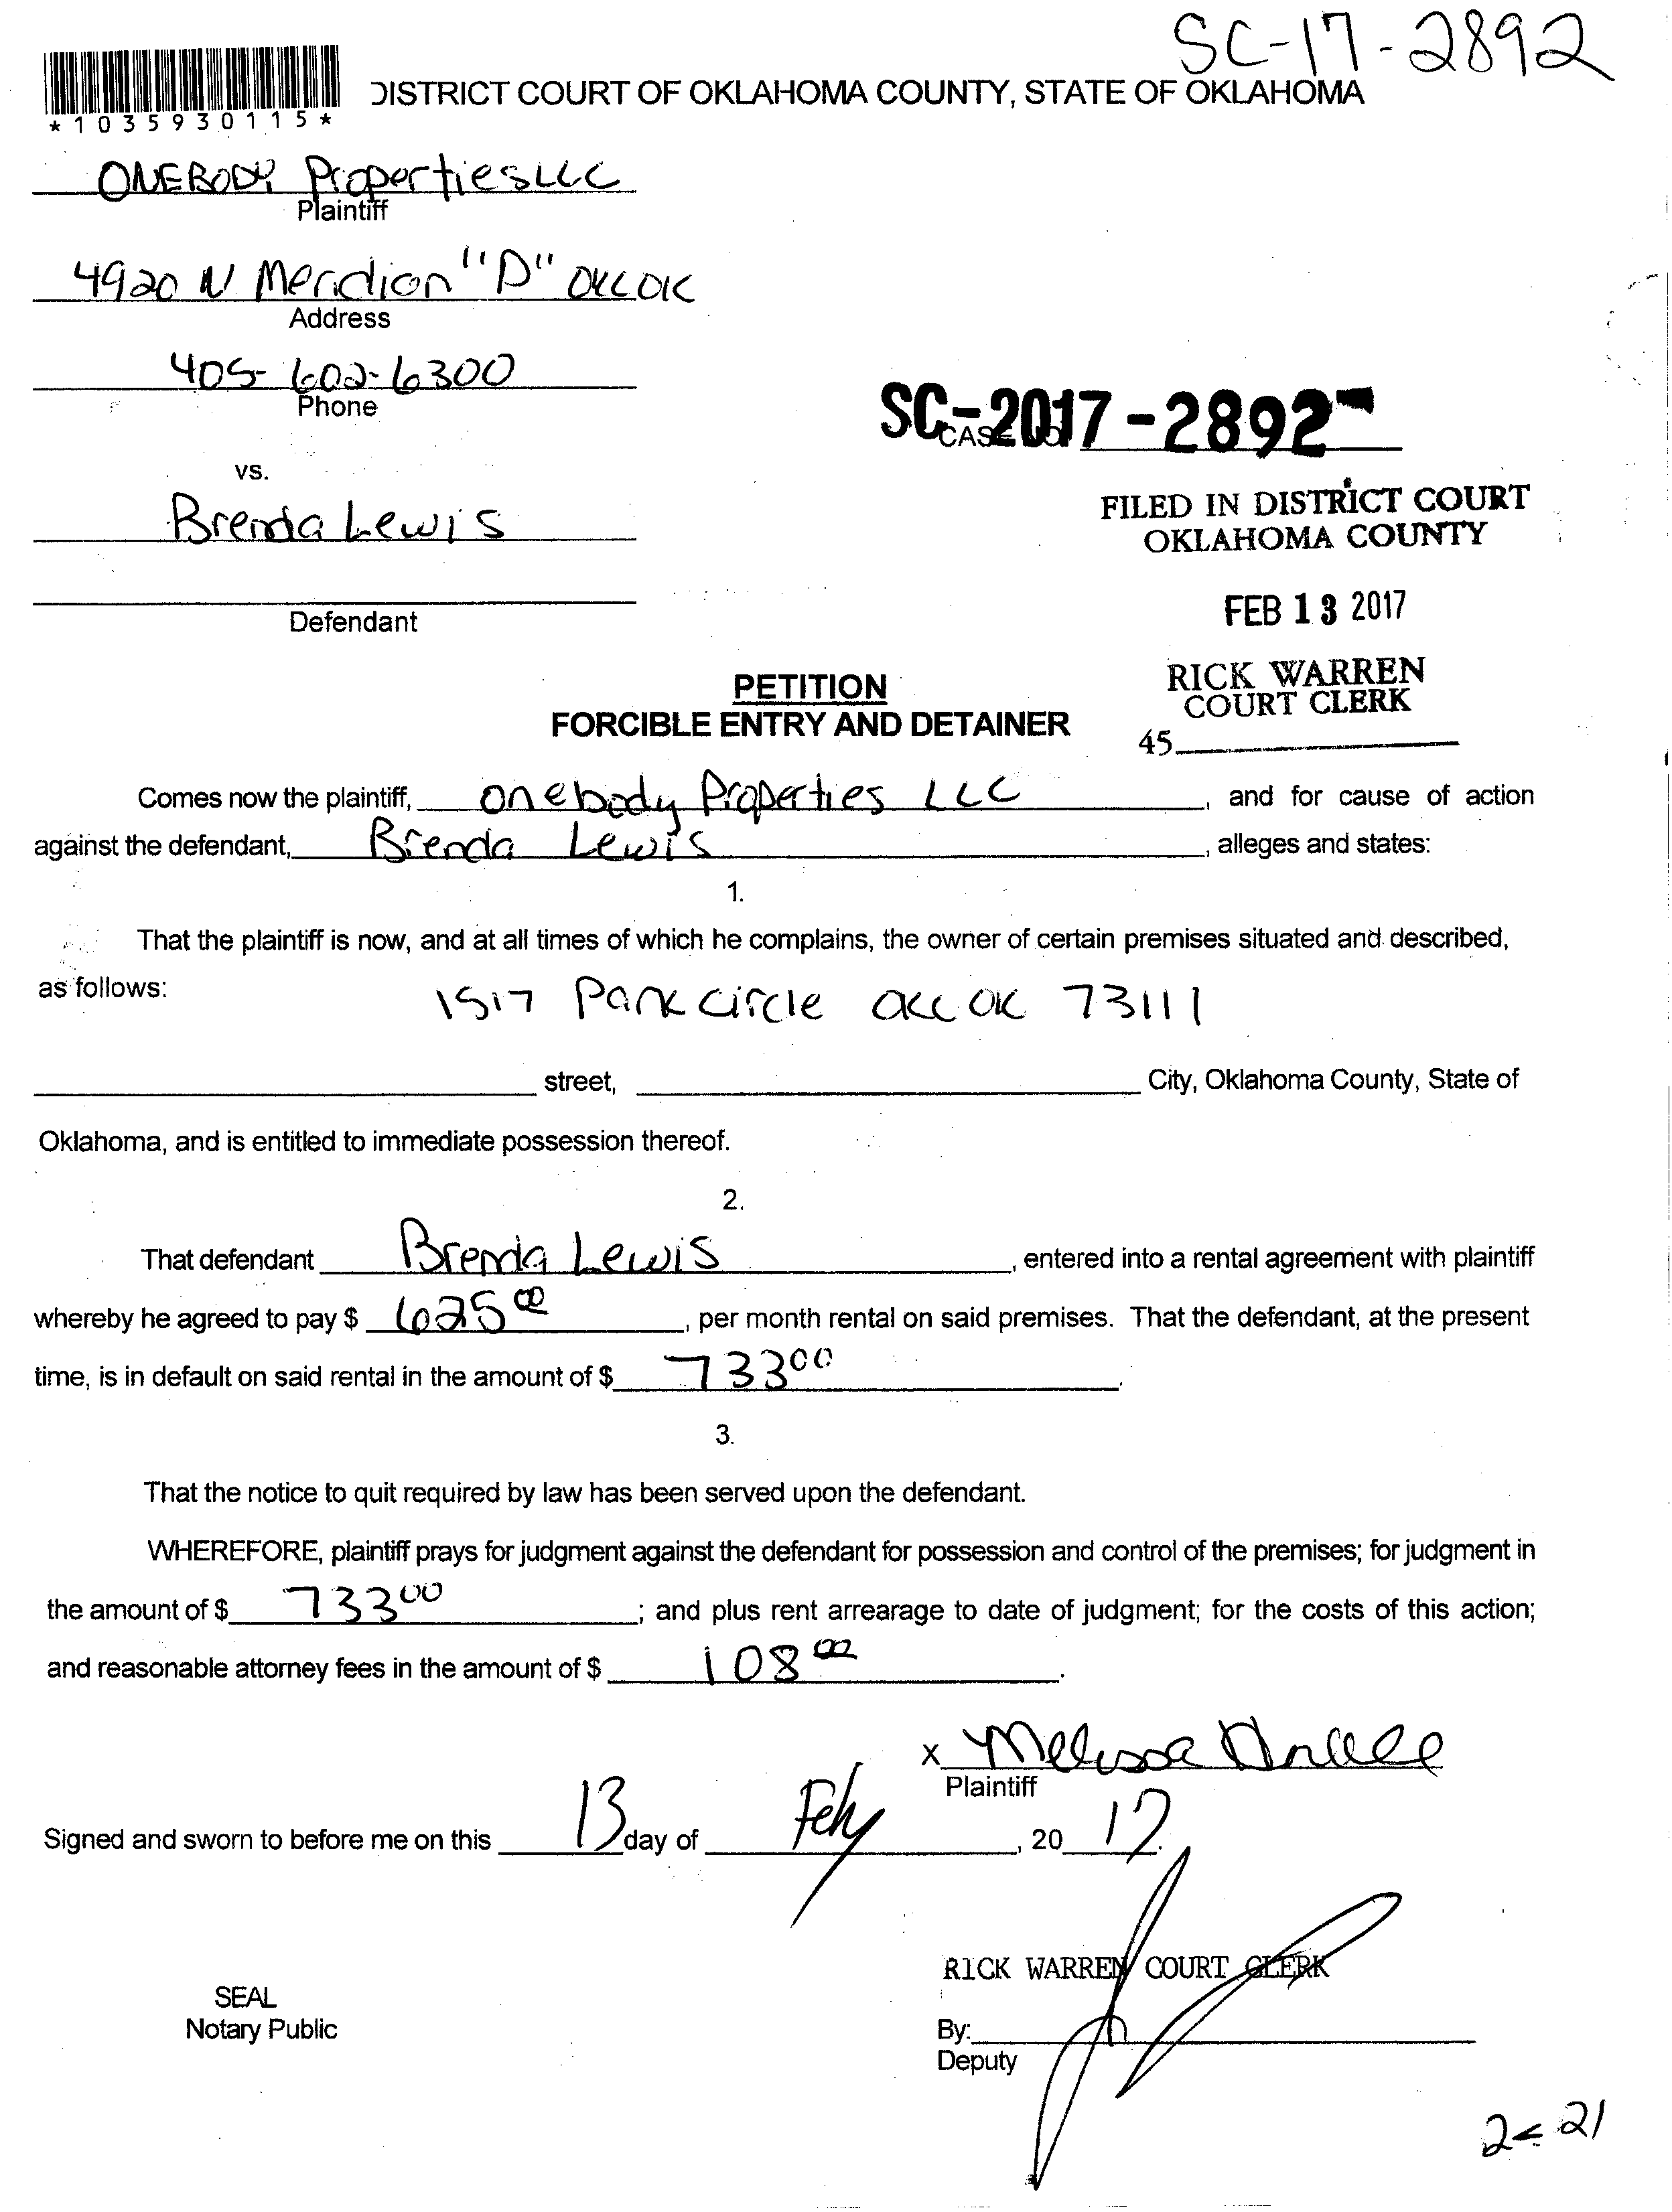 SC-17-2892
*1035930115*
DISTRICT COURT OF OKLAHOMA COUNTY, STATE OF OKLAHOMA
ONEBODY Properties LLC
Plaintiff
4920 N Meridian "D" OKC OK
Address
405-602-6300
Phone
SC-2017-2892
CASE NO
vs.
Brenda Lewis
FILED IN DISTRICT COURT
OKLAHOMA COUNTY
Defendant
FEB 13 2017
PETITION
RICK WARREN
COURT CLERK
FORCIBLE ENTRY AND DETAINER
45
Comes now the plaintiff, Onebody Properties LLC, and for cause of action
against the defendant, Brenda Lewis, alleges and states:
1.
That the plaintiff is now, and at all times of which he complains, the owner of certain premises situated and described,
as follows: 1517 Park circle OKC OK 73111
street, City, Oklahoma County, State of
Oklahoma, and is entitled to immediate possession thereof.
2.
That defendant Brenda Lewis, entered into a rental agreement with plaintiff
whereby he agreed to pay $ 625 00, per month rental on said premises. That the defendant, at the present
time, is in default on said rental in the amount of $ 733 00.
3.
That the notice to quit required by law has been served upon the defendant.
WHEREFORE, plaintiff prays for judgment against the defendant for possession and control of the premises; for judgment in
the amount of $ 733 00; and plus rent arrearage to date of judgment; for the costs of this action;
and reasonable attorney fees in the amount of $ 108 00.
x Melissa
Plaintiff
Signed and sworn to before me on this 13 day of Feby, 2017.
RICK WARREN COURT CLERK
SEAL
Notary Public
By:
Deputy
21